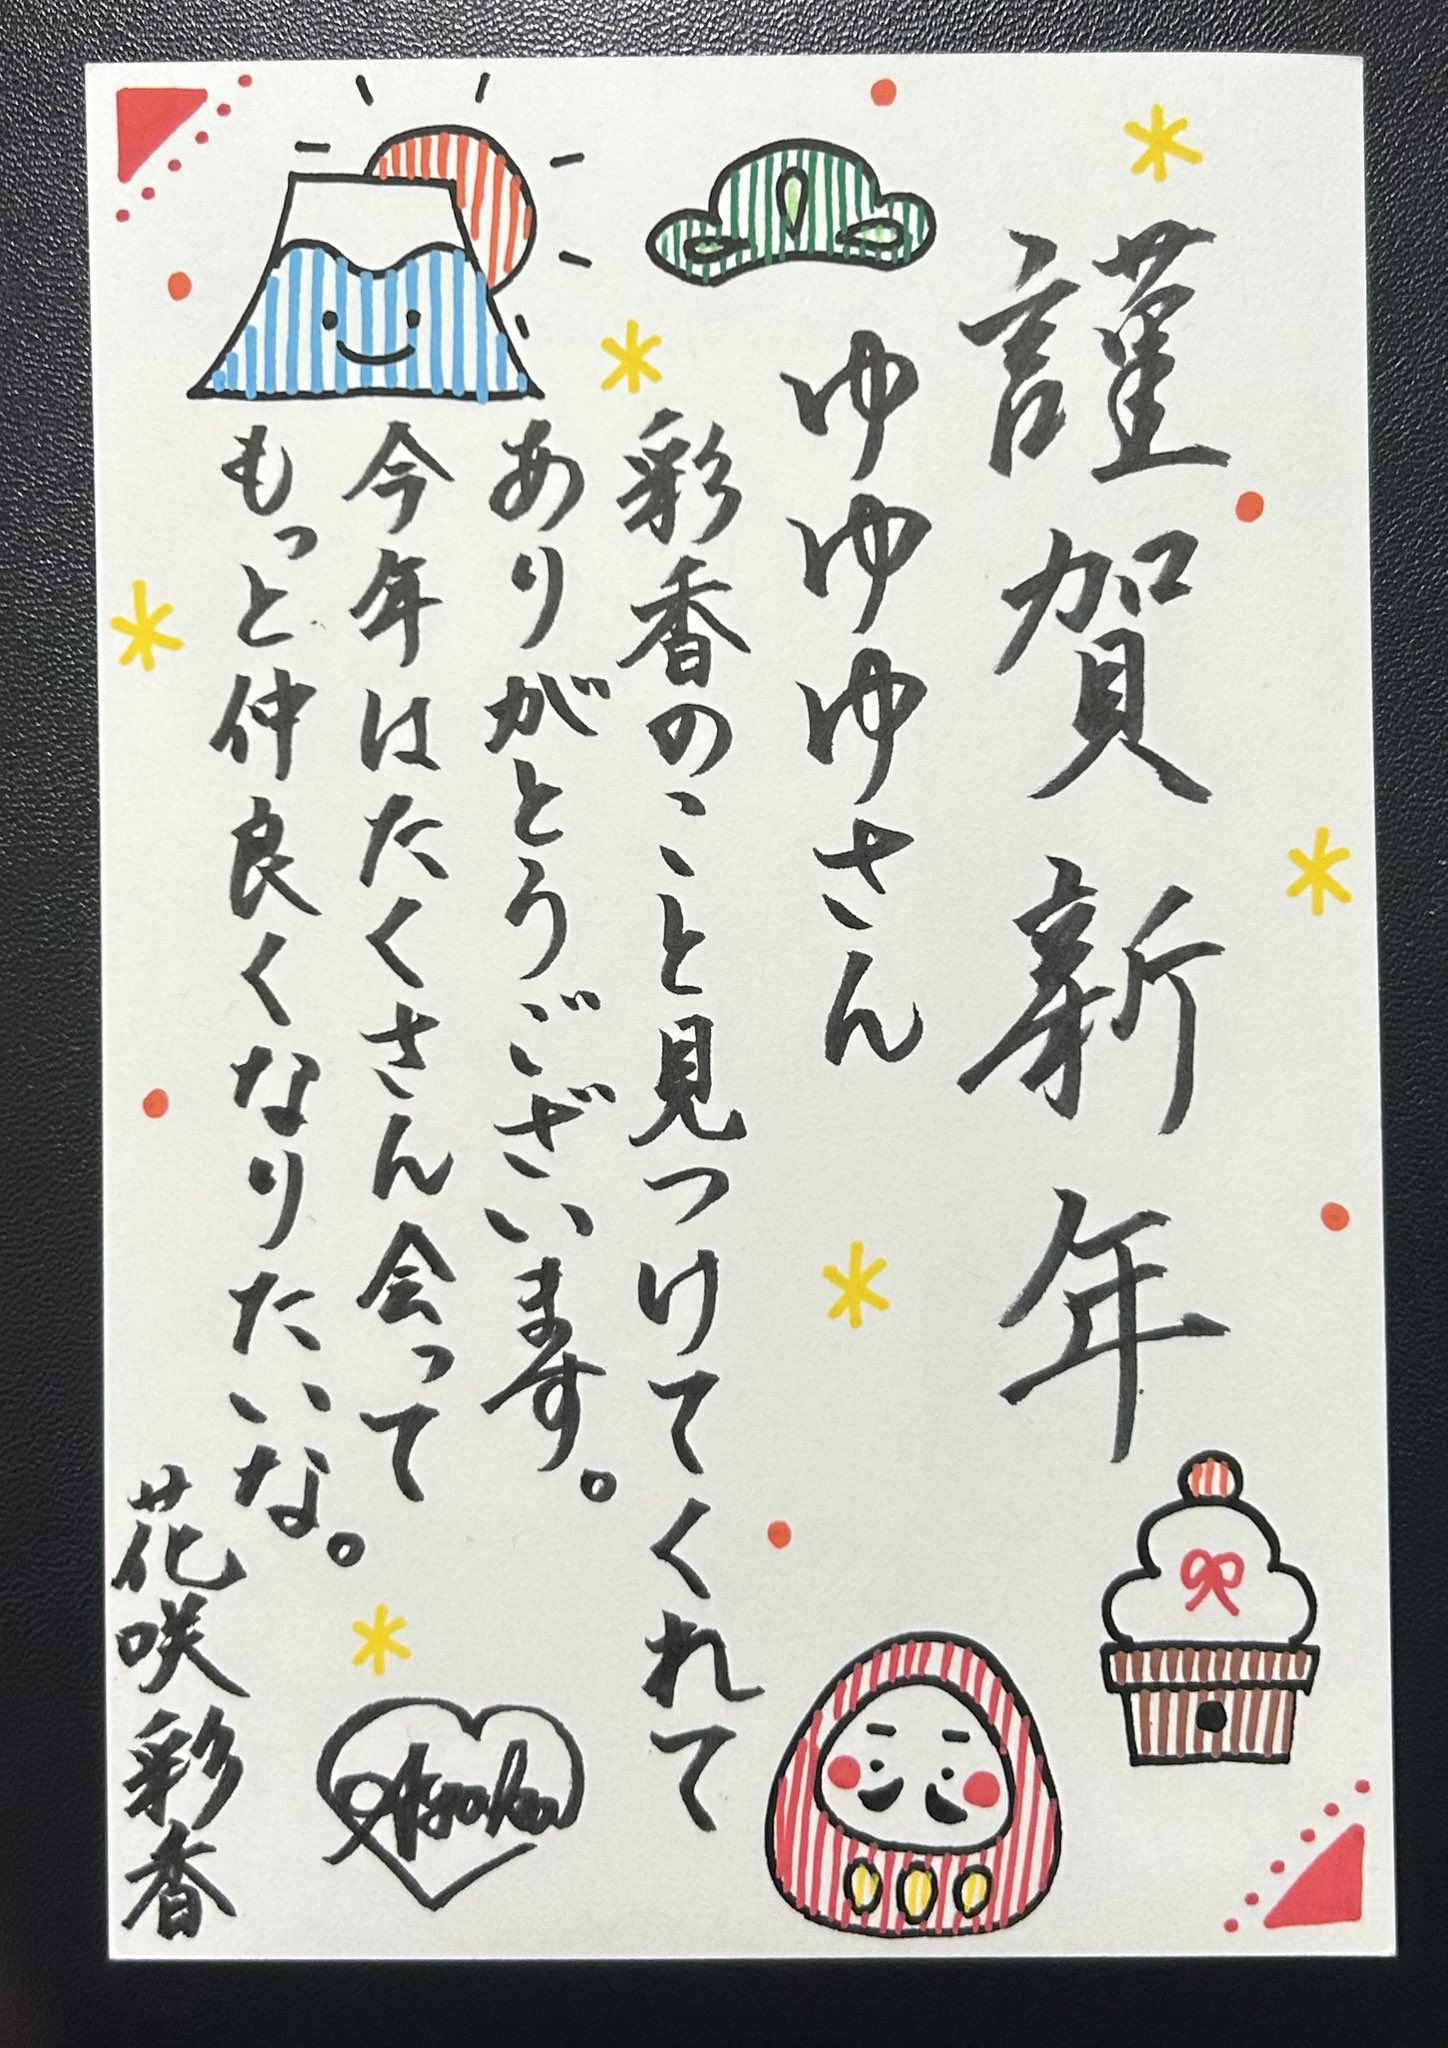 謹賀新年
ゆゆゆさん
彩香のこと見つけてくれて
ありがとうございます。
今年はたくさん会って
もっと仲良くなりたいな。
花咲彩香
Ayaka